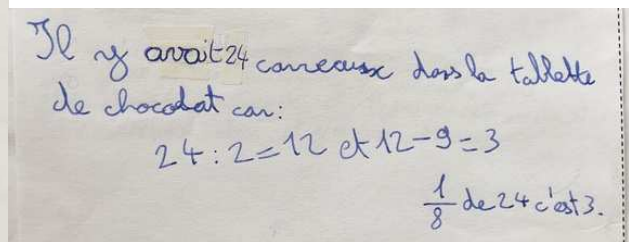 Il y avait 24 carreaux dans la tablette
de chocolat car:
24:2=12 et 12-9=3
1/8 de 24 c'est 3.